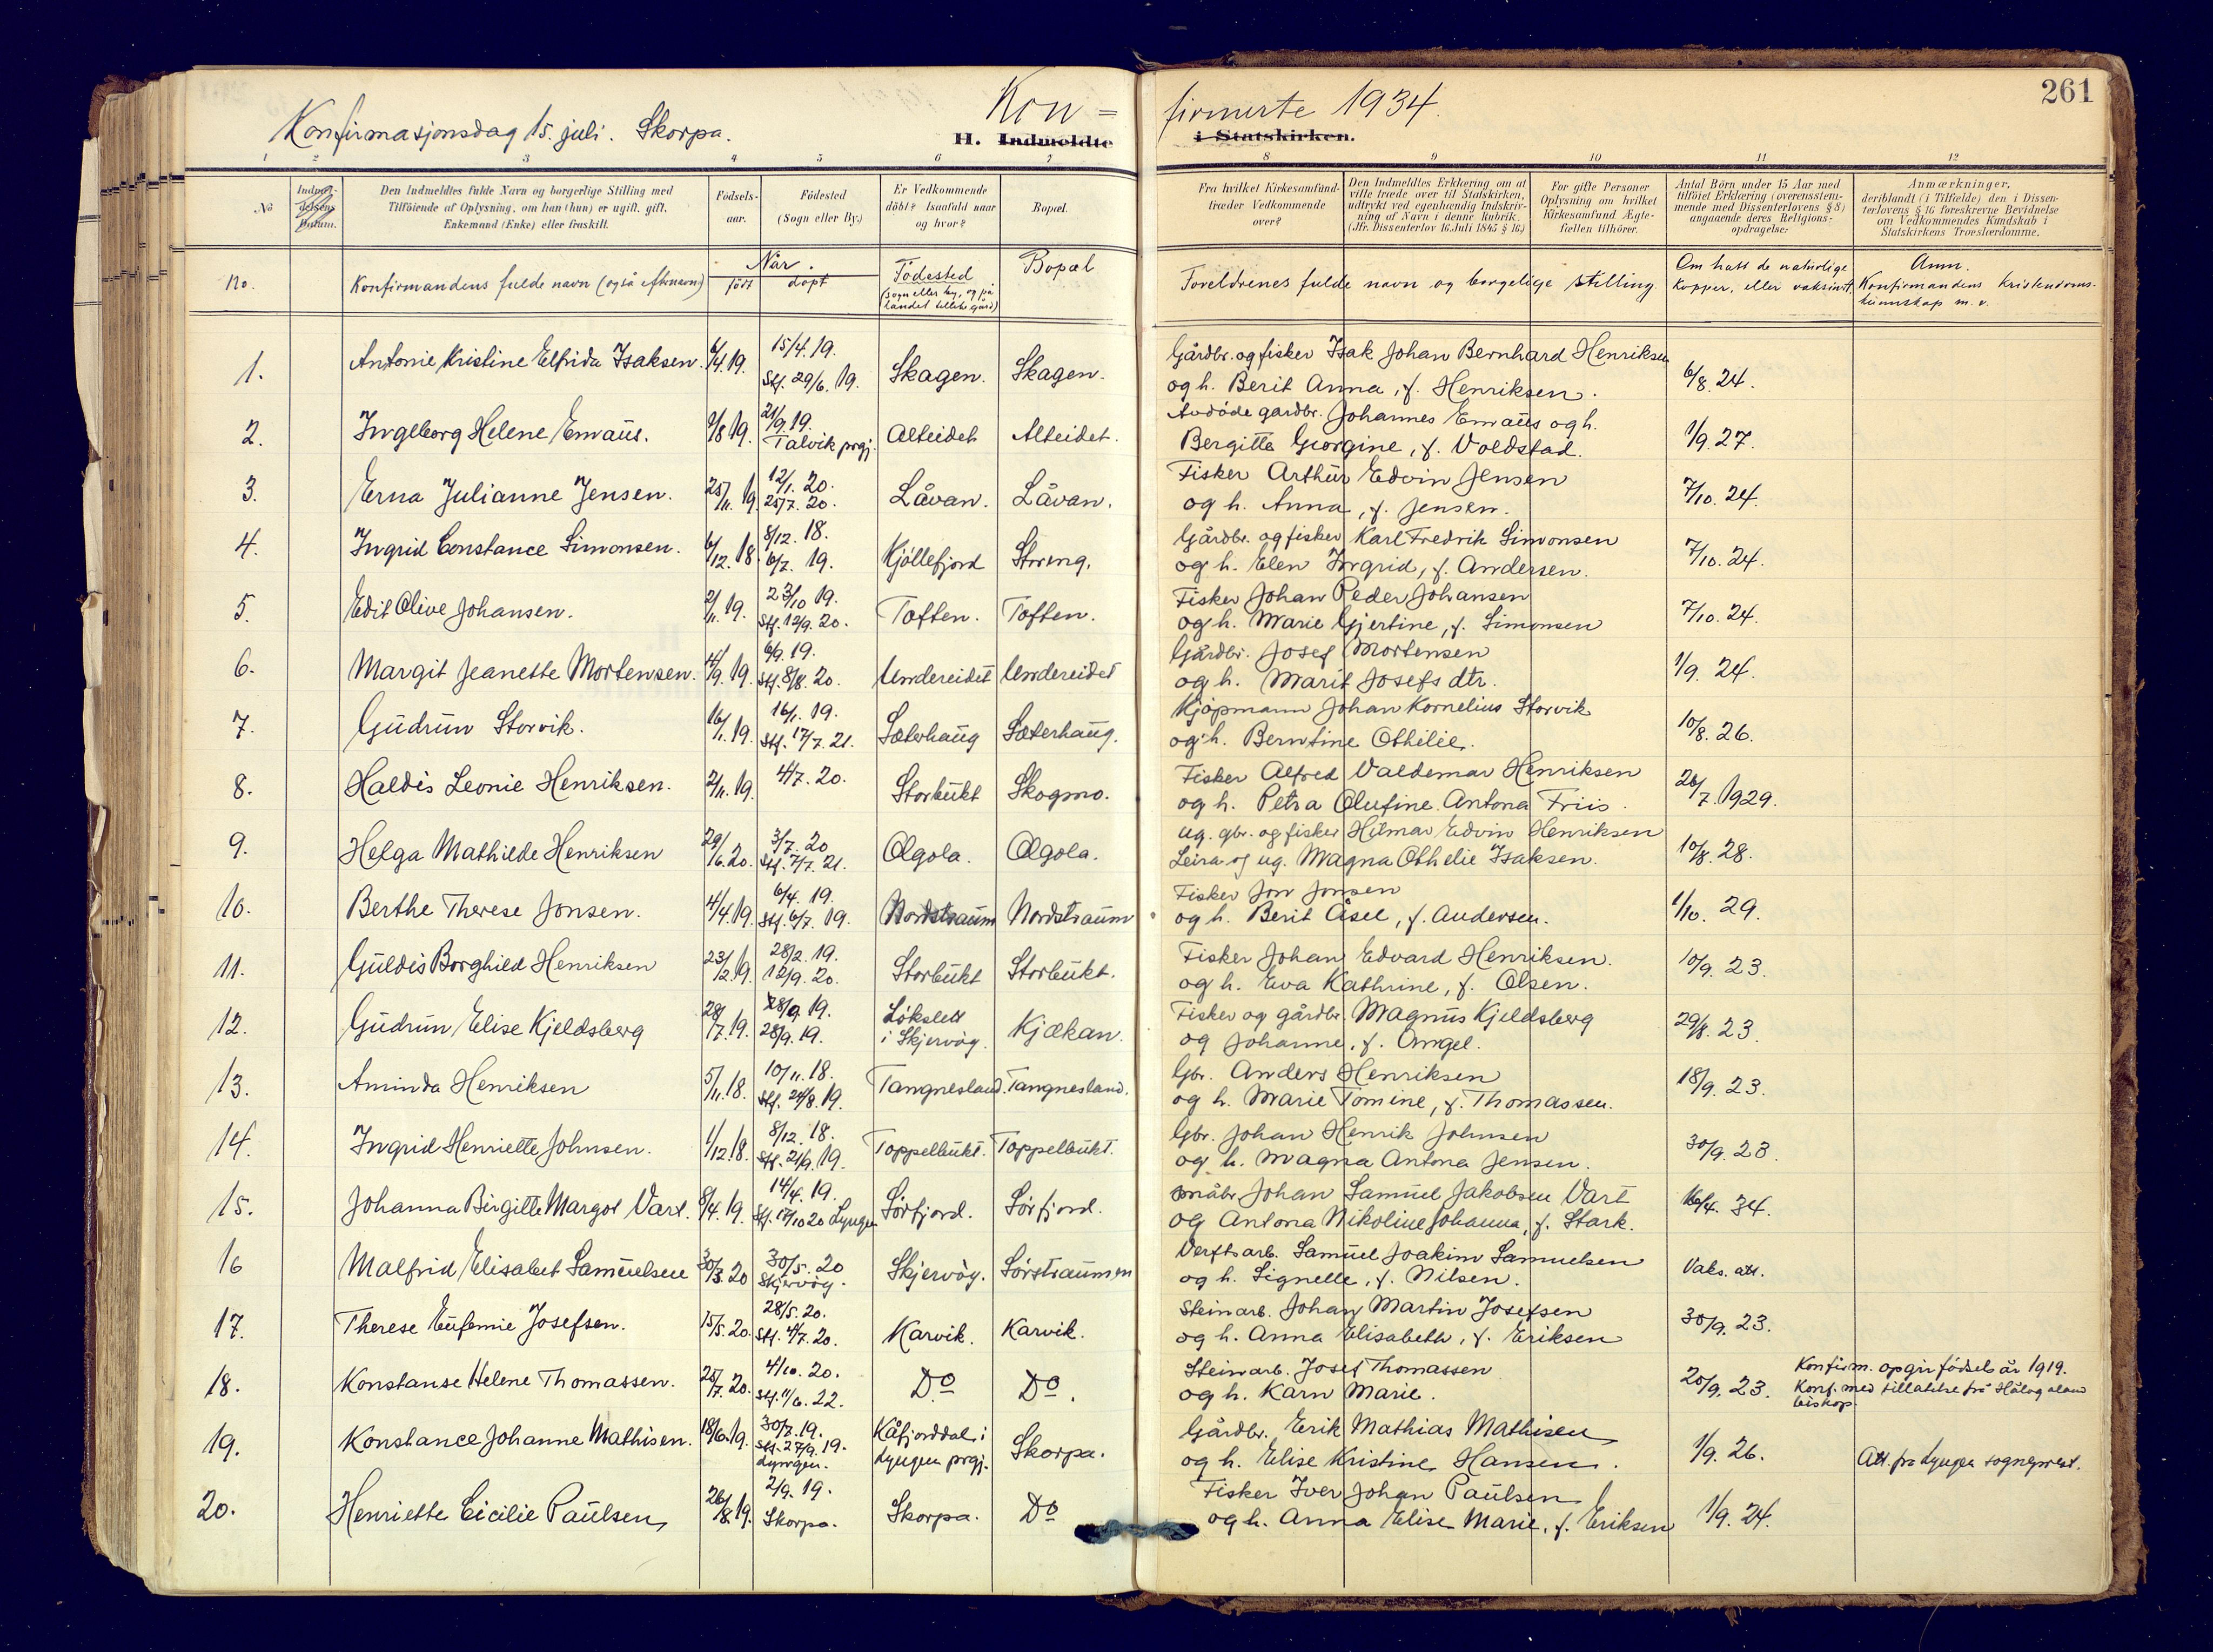 Konfirmasjonsdag 15. juli. Skorpa.
Kon =
firmerte 1934.
261
H. Indmeldte
i Statskirken.
1 2 3 4 5 6 7 8 9 10 11 12
No
Indmel-
delsens
Datum.
Den Indmeldtes fulde Navn og borgerlige Stilling med
Tilföiende af Oplysning, om han (hun) er ugift, gift,
Enkemand (Enke) eller fraskilt.
Födsels-
aar.
Födested
(Sogn eller By.)
Er Vedkommende
döbt? Isaafald naar
og hvor?
Bopæl.
Fra hvilket Kirkesamfund
træder Vedkommende
over?
Den Indmeldtes Erklæring om at
ville træde over til Statskirken,
udtrykt ved egenhændig Indskriv-
ning af Navn i denne Rubrik.
(Jfr. Dissenterlov 16 Juli 1845 § 16.)
For gifte Personer
Oplysning om hvilket
Kirkesamfund Ægte-
fællen tilhörer.
Antal Börn under 15 Aar med
tilföiet Erklæring (overensstem-
mende med Dissenterlovens § 8)
angaaende deres Religions-
opdragelse.
Anmærkninger,
deriblandt (i Tilfælde) den i Dissen-
terlovens § 16 foreskrevne Bevidnelse
om Vedkommendes Kundskab i
Statskirkens Troeslærdomme.
No.
Konfirmandens fulde navn (også efternavn)
Når.
født døpt
Födested
(sogn eller by, og på
landet tillike gård)
Bopæl
Foreldrenes fulde navn og borgelige stilling.
Om hatt de naturlige
kopper, eller vaksinert.
Anm.
Konfirmandens kristendoms-
kunnskap m. v.
1. Antonie Kristine Elfrida Isaksen. 6/4.19. 15/4.19. Stf. 29/6.19. Skagen. Skagen. Gårdbr. og fisker Isak Johan Bernhard Henriksen
og h. Berit Anna, f. Henriksen. 6/8.24.
2. Ingeborg Helene Emaus. 9/8 19. 21/9.19. Talvik prgj. Alteidet Alteidet. Avdöde gardbr. Johannes Emaus og h.
Bergitta Georgine, f. Voldstad. 1/9.27.
3. Erna Julianne Jensen. 25/11.19. 12/1.20. 25/7.20. Låvan. Låvan. Fisker Arthur Edvin Jensen
og h. Anna, f. Jensen. 7/10.24.
4. Ingrid Constance Simonsen. 6/12.18. 8/12.18. 6/7.19. Kjöllefjord Storeng. Gårdbr. og fisker Karl Fredrik Simonsen
og h. Elen Ingrid, f. Andersen. 7/10.24.
5. Edit Olive Johansen. 2/11.19. 23/10 19. Stf. 12/9.20. Toften. Toften. Fisker Johan Peder Johansen
og h. Marie Gjertine, f. Simonsen 7/10.24.
6. Margit Jeanette Mortensen. 4/9.19. 6/9.19. Stf. 8/8.20. Undereidet Undereidet Gårdbr. Josef Mortensen
og h. Marit Josefs dtr. 1/9.24.
7. Gudrun Storvik. 16/1.19. 16/1.19. Stf. 17/7.21. Sæterhaug Sæterhaug. Kjøpmann Johan Kornelius Storvik
og h. Berntine Othilie. 10/8.26.
8. Haldis Leonie Henriksen. 2/11.19. 4/7.20. Storbukt Skogmo. Fisker Alfred Valdemar Henriksen
og h. Petra Olufine Antona Friis. 26/7.1929.
9. Helga Mathilde Henriksen 29/6.20. 3/7.20 Stf. 7/7.21. Olgola. Olgola. Ug. gbr. og fisker Hilmar Edvin Henriksen
Leira og ug. Magna Othelie Isaksen. 10/8.28.
10. Berthe Therese Jonsen. 4/4.19. 6/4.19. Stf. 6/7.19. Nordstraum Nordstraum Fisker Jon Jonsen
og h. Berit Åsel, f. Andersen. 1/10.29.
11. Guldis Borghild Henriksen 23/2.19. 28/2.19. 12/9.20. Storbukt Storbukt. Fisker Johan Edvard Henriksen.
og h. Eva Kathrine, f. Olsen. 10/9.23.
12. Gudrun Elise Kjeldsberg 28/7.19. 28/9.19. 28/9.19. Løkslett i Skjervøy. Kjækan. Fisker og gårdbr. Magnus Kjeldsberg
og Johanne, f. Angel. 29/8.23.
13. Aminda Henriksen 5/11.18. 10/11.18. Stf. 24/8.19. Tangnesland. Tangnesland. Gbr. Anders Henriksen
og h. Marie Tomine, f. Thomassen. 18/9.23.
14. Ingrid Henriette Johnsen. 1/12.18. 8/12.18. Stf. 21/9.19. Toppelbukt. Toppelbukt. Gbr. Johan Henrik Johnsen
og h. Magna Antona Jensen. 30/9.23.
15. Johanna Birgitte Margot Vart. 8/4.19. 14/4.19. Stf. 17/10 20 Lyngen Sörfjord. Sörfjord. småbr. Johan Samuel Jakobsen Vart
og Antona Nikoline Johanna, f. Stark. 16/4.34.
16 Malfrid Elisabet Samuelsen 30/3.20 30/5.20 Skjervöy. Skjervöy. Sörstraumen Verftsarb. Samuel Joakim Samuelsen
og h. Signelle, f. Nilsen. Vaks. att.
17. Therese Eufemie Josefsen. 15/5.20. 28/5.20. Stf. 4/7.20. Karvik. Karvik. Steinarb. Johan Martin Josefsen
og h. Anna Elisabeth, f. Eriksen 30/9.23.
18. Konstanse Helene Thomassen. 25/7.20. 4/10.20. Stf. 11/6.22. Do Do. Steinarb. Josef Thomassen
og h. Karn Marie. 20/9.23. Konfirm. opgir födselsår 1919.
Konf. med tillatelse frå Hålogaland
biskop.
19. Konstance Johanne Mathisen. 18/6.19. 30/7.19. Stf. 27/9.19. Lyngen. Kåfjorddal i Lyngen prgj. Skorpa. Gårdbr. Erik Mathias Mathisen
og h. Elise Kristine Hansen. 1/9.26. Att. fra Lyngen sogneprest.
20. Henriette Cicilie Paulsen, 26/8.19. 2/9.19. Skorpa. Skorpa. Do Fisker Iver Johan Paulsen
og h. Anna Elise Marie, f. Eriksen 1/9.24.